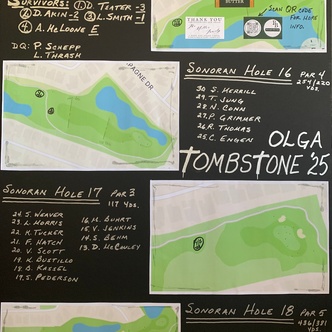 SURVIVORS: ① D. TEATER -3
② D. AKIN -2 ③ L. SMITH -1
④ A. McLOONE E
DQ: P. SCHEPP
L. THRASH
BUTTER
THANK YOU
SCAN QR CODE
FOR MORE
INFO.
PAGNE DR
SONORAN HOLE 16 PAR 4
254/220
YDS.
30 S. MERRILL
29 T. JUNG
28 N. CONN
27 P. GRIMMER
26 R. THOMAS
25 C. ENGEN
OLGA
TOMBSTONE '25
SONORAN HOLE 17 PAR 3
117 YDS.
24 S. WEAVER
23 L. NORRIS
22 H. TUCKER
21 F. HATCH
20 V. SCOTT
19 K. BUSTILLO
18 D. KASSEL
17 S. PEDERSON
16 M. BUHRT
15 V. JENKINS
14 S. BEHM
13 D. McCAULEY
SONORAN HOLE 18 PAR 5
436/381
YDS.